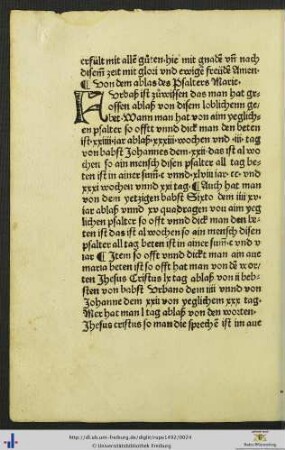 erfült mit allē gůten. hie mit gnadē vn̄ nach
disem̄ zeit mit glori vnd ewige freüdē Amen
¶ Von dem ablas des Psalters Marie.
Vrbaß ist zůwissen das man hat gr
ossen ablaß von disem loblichenn ge
bet. Wann man hat von aim yeglich
en psalter so offt vnnd dick man den beten
ist. xxiiii. iar ablaß. xxxiii. wochen vnd. iii. tag
von babst Johannes dem. xxii. das ist al wo
chen so ain mensch disen psalter all tag be
ten ist in ainer sum̄e vnnd. xlviii iar. vnd
xxxi wochen vnnd xxi tag. ¶ Auch hat man
von dem yetzigen babst Sixto dem iiii xv.
iar ablaß vnnd xv quadragen von aim yeg
lichen psalter so offt vnnd dick man den be
ten ist das ist al wochen so ain mensch disen
psalter all tag beten ist in ainer sum̄e vnd v
iar ¶ Item so offt vnnd dickt man ain aue
maria beten ist so offt hat man von dē wor
ten Jhesus Cristus lx tag ablaß von ii beb-
sten von babst Vrbano dem iiii vnnd von
Johanne dem xxii von yeglichem xxx tag.
Mer hat man l tag ablaß von den worten.
Jhesus cristus so man die sprechē ist im aue
http://dl.ub.uni-freiburg.de/diglit/rups1492/0024
© Universitätsbibliothek Freiburg